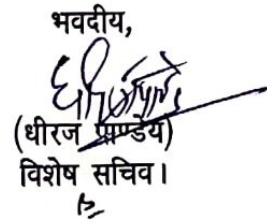 भवदीय,
(धीरज पाण्डेय)
विशेष सचिव।